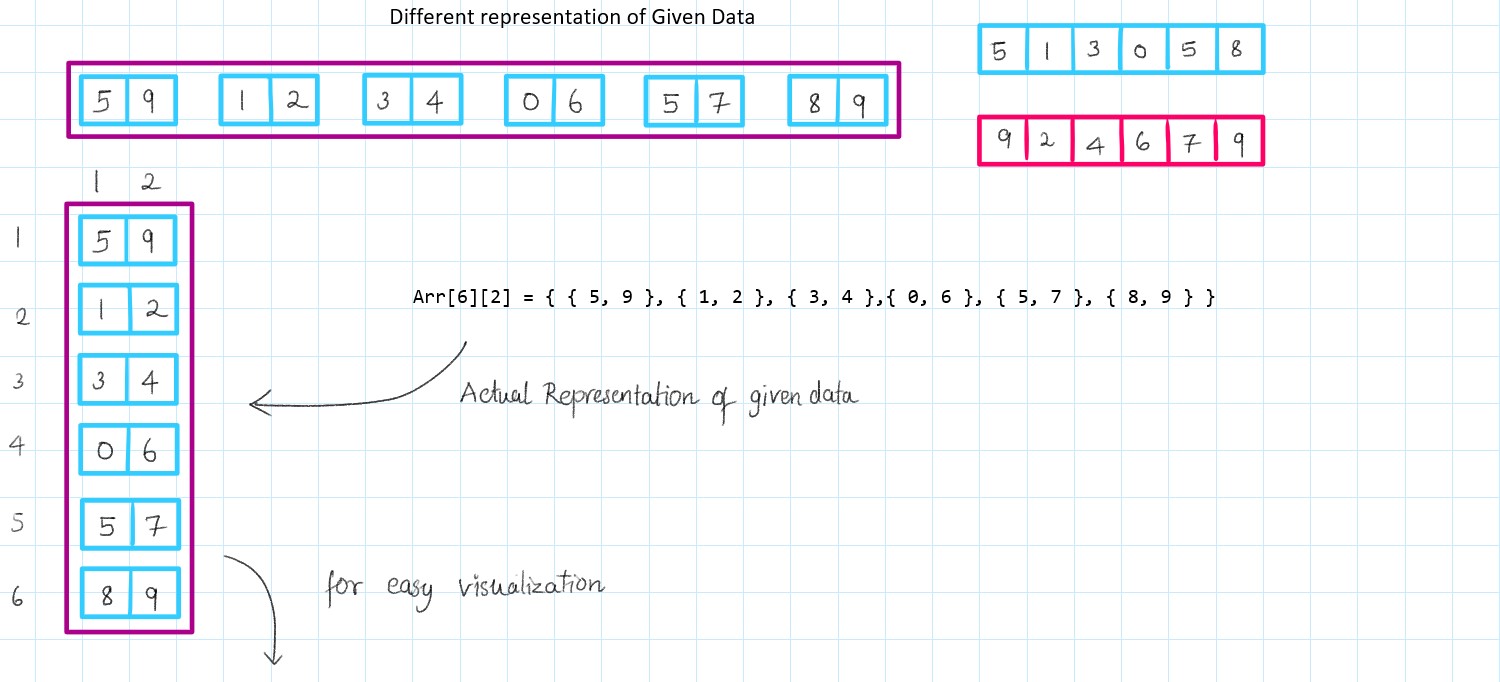 Different representation of Given Data
5 9 1 2 3 4 0 6 5 7 8 9
5 1 3 0 5 8
9 2 4 6 7 9
1 2
1 5 9
2 1 2
3 3 4
4 0 6
5 5 7
6 8 9
Arr[6][2] = { { 5, 9 }, { 1, 2 }, { 3, 4 },{ 0, 6 }, { 5, 7 }, { 8, 9 } }
Actual Representation of given data
for easy visualization